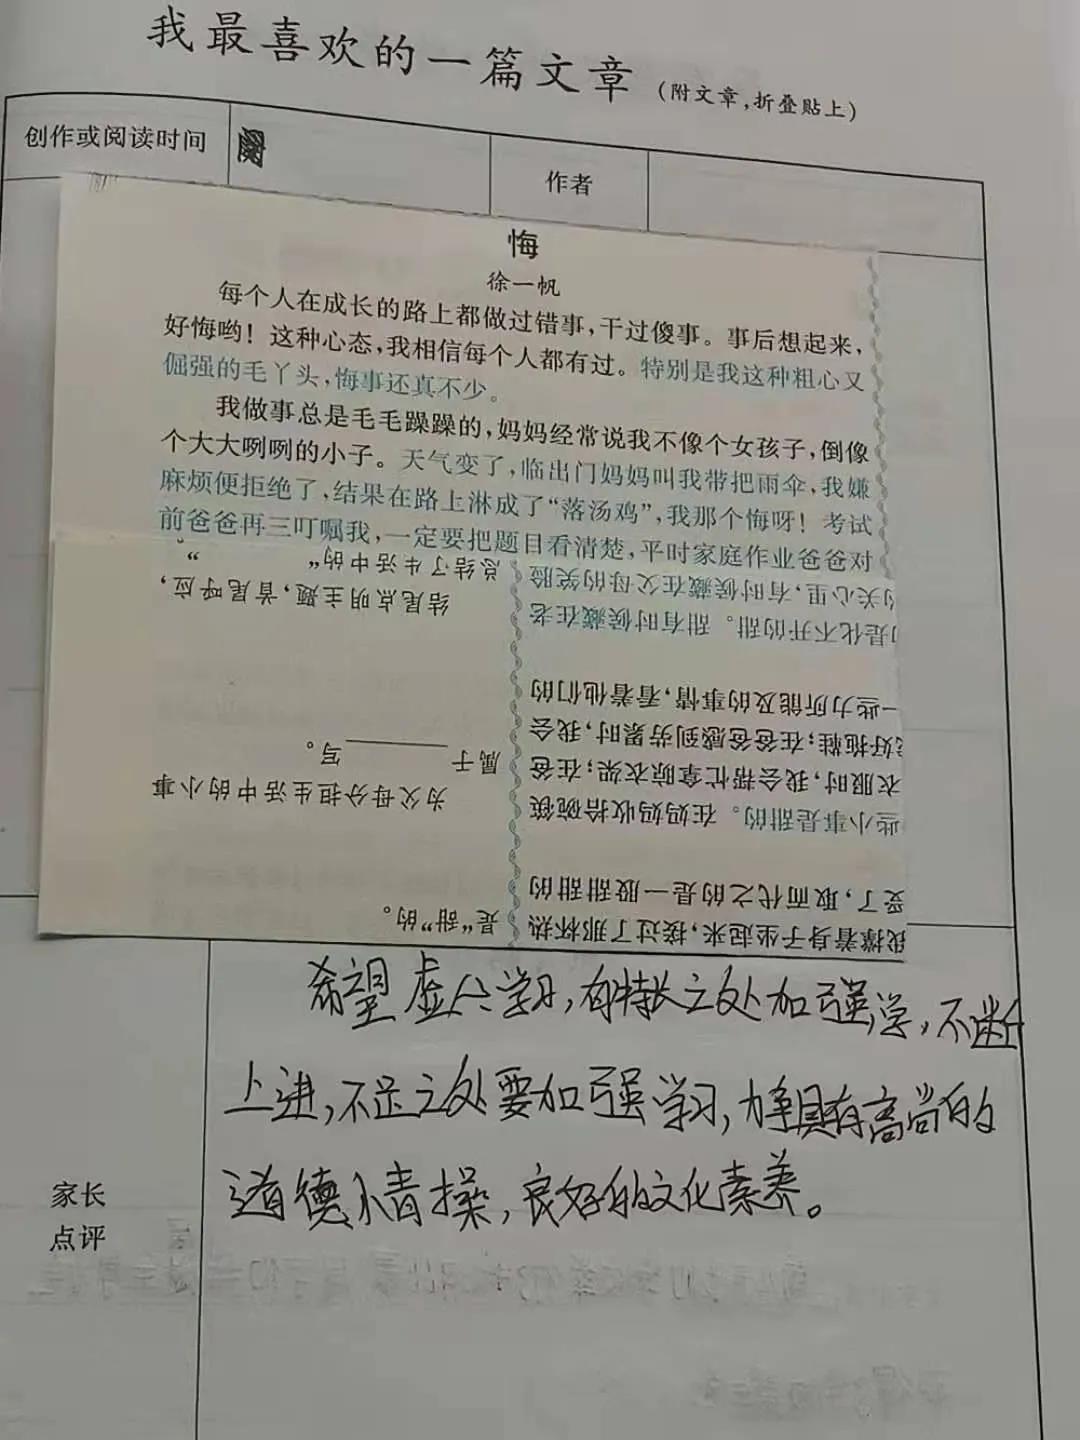 我最喜欢的一篇文章（附文章，折叠贴上）
创作或阅读时间
作者
悔
徐一帆
每个人在成长的路上都做过错事，干过傻事。事后想起来，
好悔哟！这种心态，我相信每个人都有过。特别是我这种粗心又
倔强的毛丫头，悔事还真不少。
我做事总是毛毛躁躁的，妈妈经常说我不像个女孩子，倒像
个大大咧咧的小子。天气变了，临出门妈妈叫我带把雨伞，我嫌
麻烦便拒绝了，结果在路上淋成了“落汤鸡”，我那个悔呀！考试
前爸爸再三叮嘱我，一定要把题目看清楚，平时家庭作业爸爸对
我撑着身子坐起来，接过了那杯热
受了，取而代之的是一股甜甜的
些小事是甜的。在妈妈收拾碗筷
衣服时，我会帮忙拿晾衣架；在爸
好拖鞋；在爸爸感到劳累时，我会
一些力所能及的事情，看着他们的
是化不开的甜。甜有时候藏在老
关心里，有时候藏在父母的笑脸
是“甜”的。
为父母分担生活中的小事
属于______写。
结尾点明主题，首尾呼应，
总结了生活中的“ ”。
希望虚心学习，有特长之处加强学，不断
上进，不足之处要加强学习，争具有高尚的
道德情操，良好的文化素养。
家长
点评